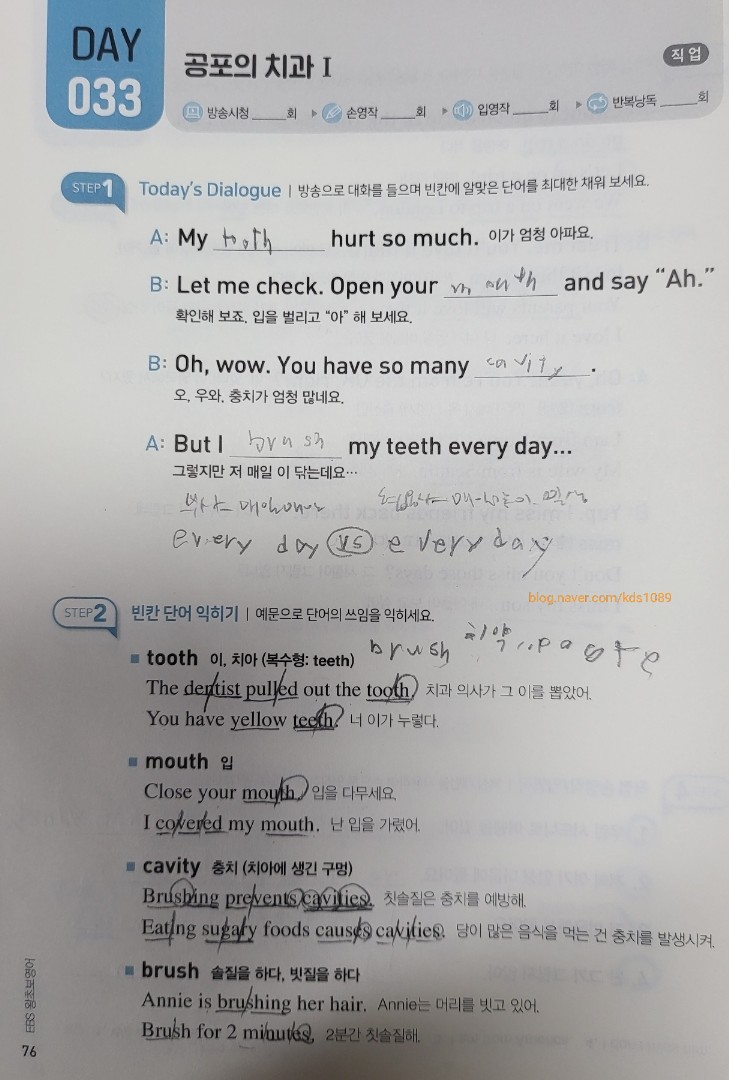 DAY
033
공포의 치과 I
직업
방송시청 ____회 ▶ 손영작 ____회 ▶ 입영작 ____회 ▶ 반복낭독 ____회
STEP 1 Today's Dialogue | 방송으로 대화를 들으며 빈칸에 알맞은 단어를 최대한 채워 보세요.
A: My tooth hurt so much. 이가 엄청 아파요.
B: Let me check. Open your mouth and say “Ah.”
확인해 보죠. 입을 벌리고 “아” 해 보세요.
B: Oh, wow. You have so many cavity.
오, 우와. 충치가 엄청 많네요.
A: But I brush my teeth every day...
그렇지만 저 매일 이 닦는데요…
부사 매일매일
every day VS everyday
blog.naver.com/kds1089
STEP 2 빈칸 단어 익히기 | 예문으로 단어의 쓰임을 익히세요.
brush 치약 paste
■ tooth 이, 치아 (복수형: teeth)
The dentist pulled out the tooth. 치과 의사가 그 이를 뽑았어.
You have yellow teeth. 너 이가 누렇다.
■ mouth 입
Close your mouth. 입을 다무세요.
I covered my mouth. 난 입을 가렸어.
■ cavity 충치 (치아에 생긴 구멍)
Brushing prevents cavities. 칫솔질은 충치를 예방해.
Eating sugary foods causes cavities. 당이 많은 음식을 먹는 건 충치를 발생시켜.
■ brush 솔질을 하다, 빗질을 하다
Annie is brushing her hair. Annie는 머리를 빗고 있어.
Brush for 2 minutes. 2분간 칫솔질해.
EBS 왕초보영어
76